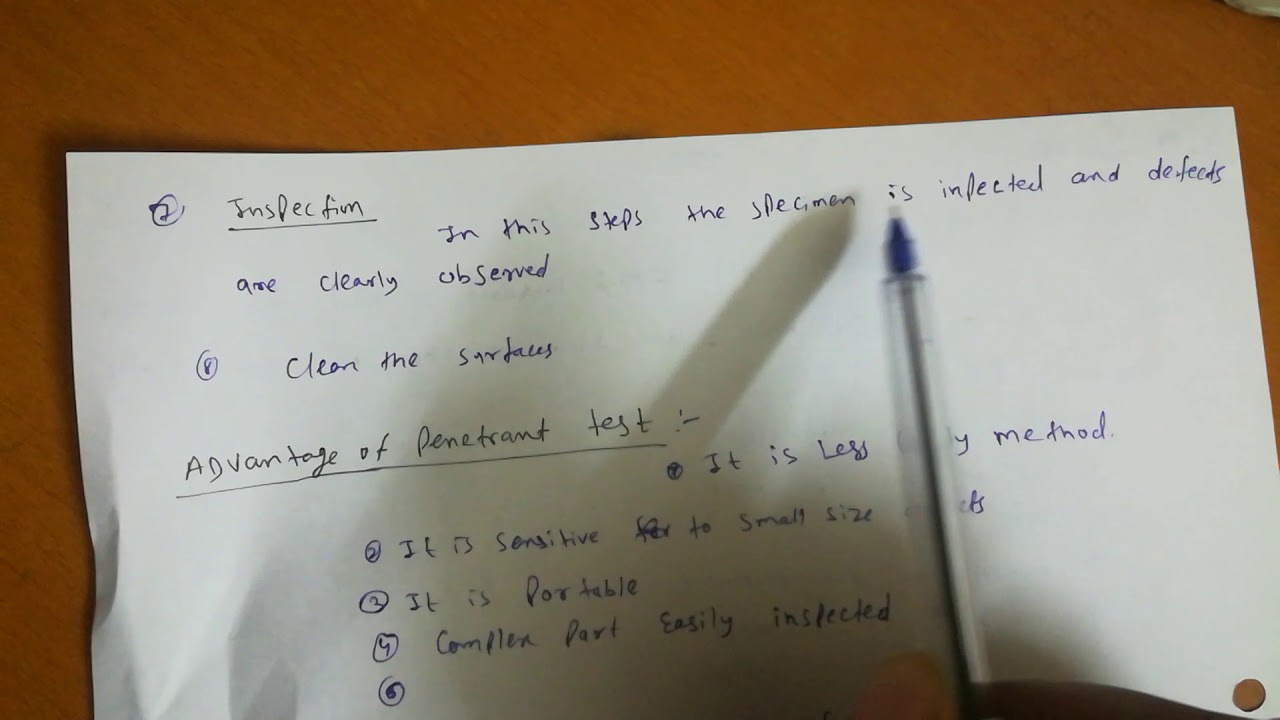 ⑦ Inspection
In this steps the specimen is infected and defects
are clearly observed
⑧ Clean the surfaces
ADvantage of Penetrant test :-
① It is Less method.
② It is sensitive to small size
③ It is Portable
④ Complex Part Easily inspected
⑤